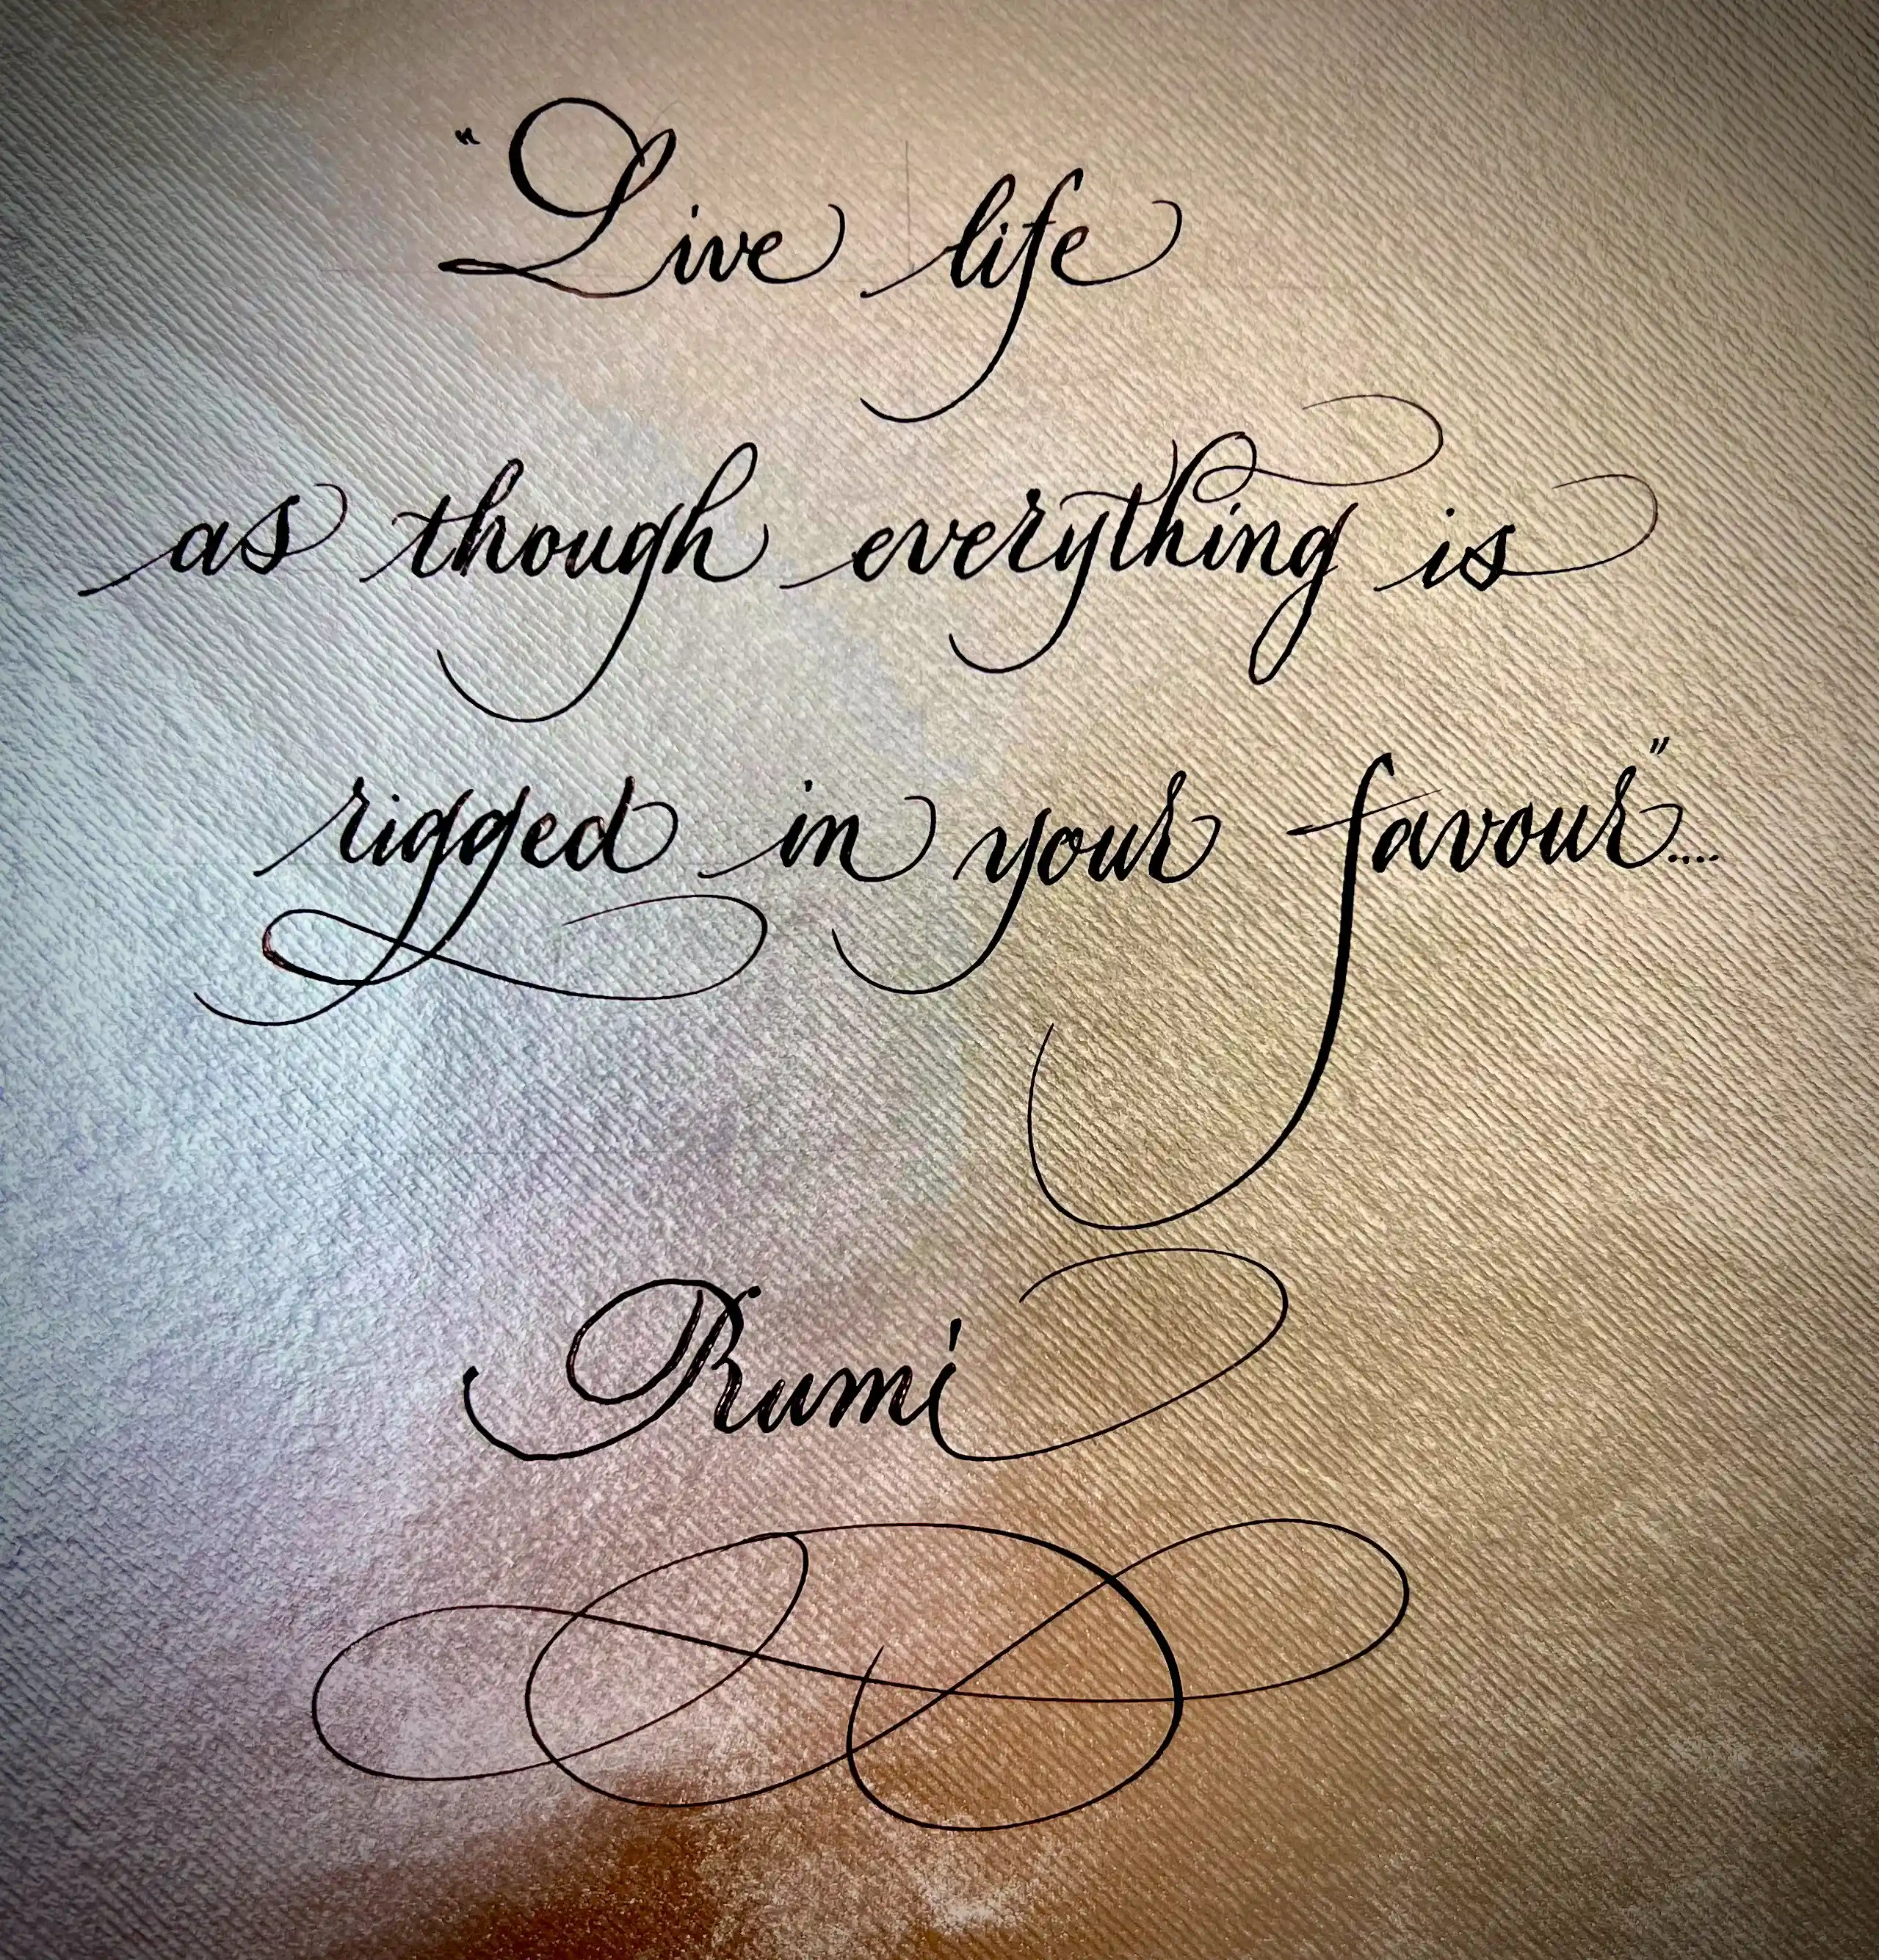 "Live life
as though everything is
rigged in your favour"....
Rumi